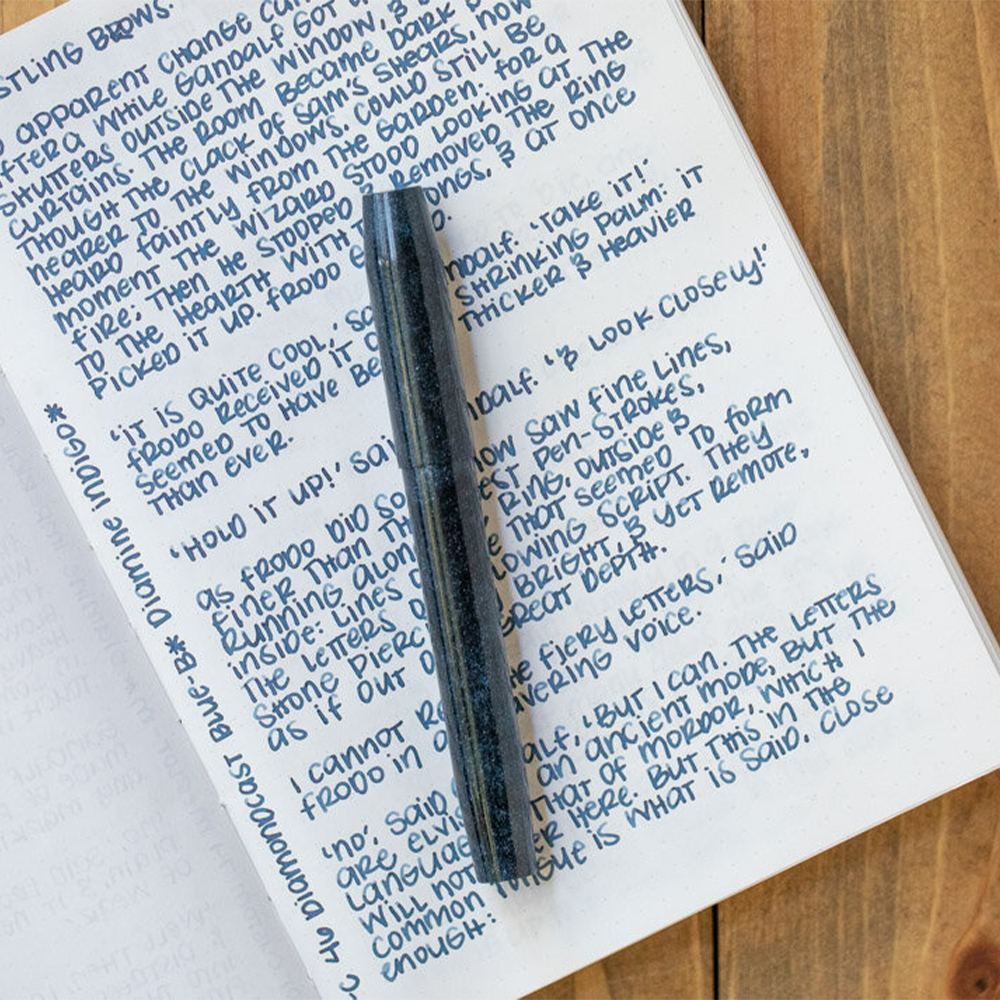 STLING BROWS.
APPARENT CHANGE
AFTER A WHILE GANDALF GOT
SHUTTERS OUTSIDE THE WINDOW, &
CURTAINS. THE ROOM BECAME DARK
THOUGH THE CLACK OF SAM'S SHEARS, NOW
NEARER TO THE WINDOWS, COULD STILL BE
HEARD FAINTLY FROM THE GARDEN. FOR A
MOMENT THE WIZARD STOOD LOOKING AT THE
FIRE; THEN HE STOOPED & REMOVED THE RING
TO THE HEARTH WITH ONGS, & AT ONCE
PICKED IT UP. FRODO
'IT IS QUITE COOL,' NDALF. 'TAKE IT!'
FRODO RECEIVED IT SHRINKING PALM: IT
SEEMED TO HAVE BE THICKER & HEAVIER
THAN EVER.
'HOLD IT UP!' SAI NDALF. '& LOOK CLOSELY!'
AS FRODO DID SO NOW SAW FINE LINES,
FINER THAN EST PEN-STROKES,
RUNNING ALON RING, OUTSIDE &
INSIDE: LINES THAT SEEMED TO FORM
THE LETTERS O LOWING SCRIPT. THEY
SHONE PIERC BRIGHT, & YET REMOTE,
AS IF OUT REAT DEPTH.
I CANNOT RE HE FIERY LETTERS,' SAID
FRODO IN AVERING VOICE.
'NO,' SAID ALF, 'BUT I CAN. THE LETTERS
ARE ELVIS AN ANCIENT MODE, BUT THE
LANGUAGE THAT OF MORDOR, WHICH I
WILL NOT ER HERE. BUT THIS IN THE
COMMON TONGUE IS WHAT IS SAID, CLOSE
ENOUGH:
C 46 DIAMONDCAST BLUE-B* DIAMINE INDIGO*